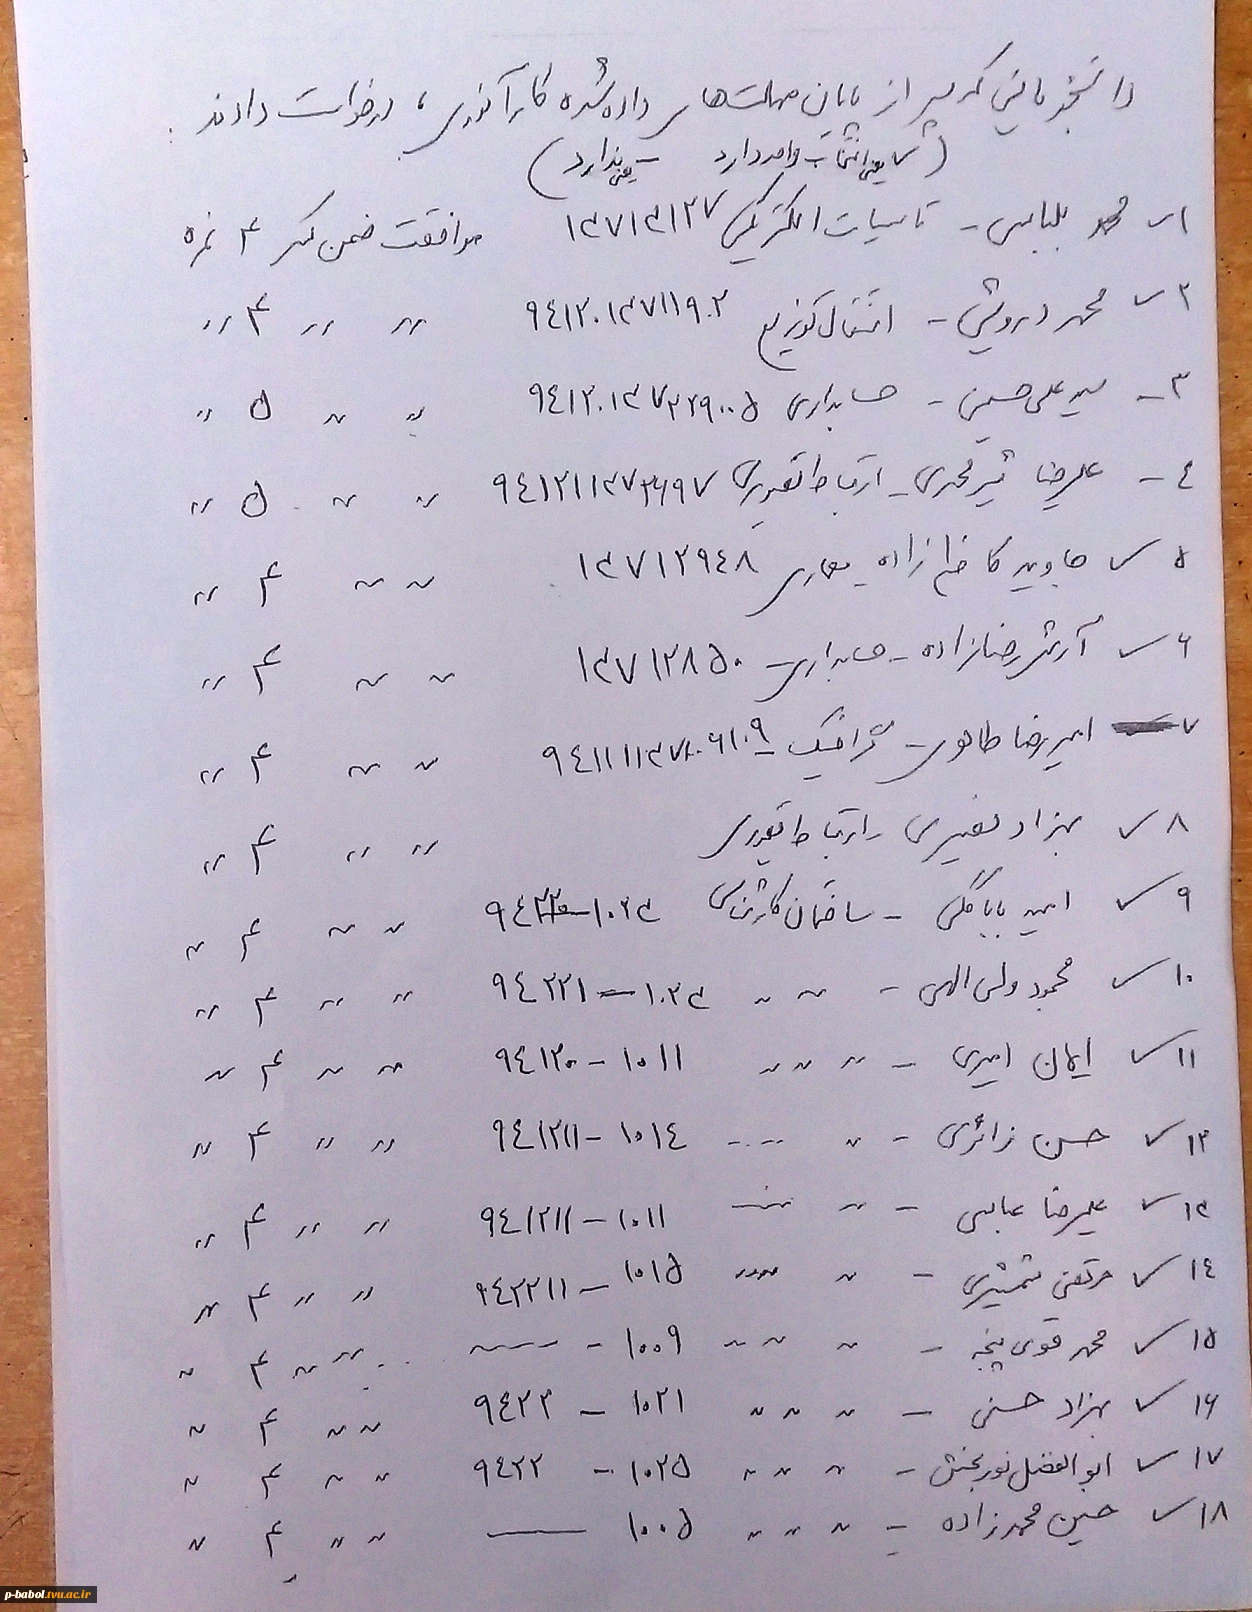 دانشجویانی که پس از پایان مهلت‌های داده شده کارآموزی، درخواست دادند.
(✓ یعنی انتخاب واحد دارد – یعنی ندارد)
۱✓ محمد بلباسی – تاسیسات الکتریکی موافقت ضمن کسر ۴ نمره
۲✓ محمد درویشی – انتقال توزیع 〃 〃 ۴ 〃
۳– سید علی حسینی – حسابداری 〃 〃 ۵ 〃
۴– علیرضا شیرمحمدی – ارتباط تصویری 〃 〃 ۵ 〃
۵✓ جاوید کاظم زاده معماری ۱۳۷۱۲۹۴۸ 〃 〃 ۴ 〃
۶✓ آرش رضازاده – حسابداری – ۱۳۷۱۲۸۵۰ 〃 〃 ۴ 〃
۷ امیررضا طالبی – گرافیک – 〃 〃 ۴ 〃
۸✓ بهزاد نصیری ارتباط تصویری 〃 〃 ۴ 〃
۹✓ امید باباگلی – ساختمان کارشناسی ۱۰۲۳ 〃 〃 ۴ 〃
۱۰✓ محمود ولی الهی – 〃 〃 ۱۰۲۳–۹۴۲۲۱ 〃 〃 ۴ 〃
۱۱✓ ایمان امیری – 〃 〃 〃 ۱۰۱۱–۹۴۱۲۰ 〃 〃 ۴ 〃
۱۲✓ حسن زائری – 〃 〃 ۱۰۱۴–۹۴۱۲۱۱ 〃 〃 ۴ 〃
۱۳✓ علیرضا عباسی – 〃 〃 ۱۰۱۱–۹۴۱۲۱۱ 〃 〃 ۴ 〃
۱۴✓ مرتضی شمشیری – 〃 〃 ۱۰۱۵–۹۴۲۲۱۱ 〃 〃 ۴ 〃
۱۵✓ محمد قوی پنجه – 〃 〃 〃 ۱۰۰۹ – 〃 〃 ۴ 〃
۱۶✓ بهزاد حسنی – 〃 〃 〃 ۱۰۲۱ – ۹۴۲۲ 〃 〃 ۴ 〃
۱۷✓ ابوالفضل نوربخش – 〃 〃 〃 ۱۰۲۵ – ۹۴۲۲ 〃 〃 ۴ 〃
۱۸✓ حسین محمدزاده – 〃 〃 〃 ۱۰۰۵ — 〃 〃 ۴ 〃
p-babol.tvu.ac.ir